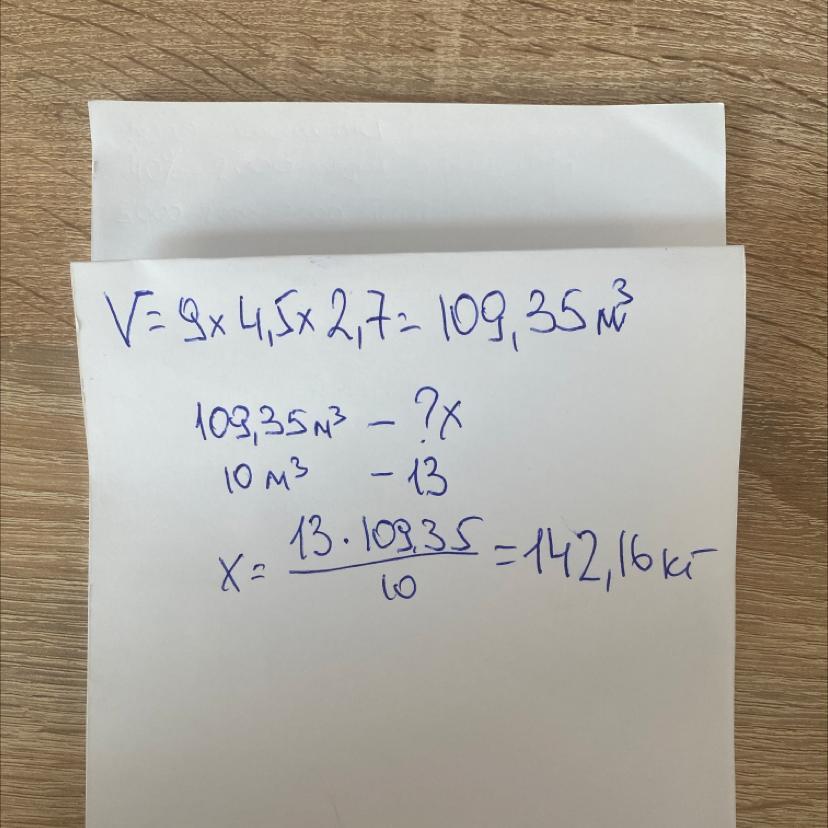 V = 9 x 4,5 x 2,7 = 109,35 м³
109,35 м³ – ?x
10 м³ – 13
x = 13 · 109,35 / 10 = 142,16 кг